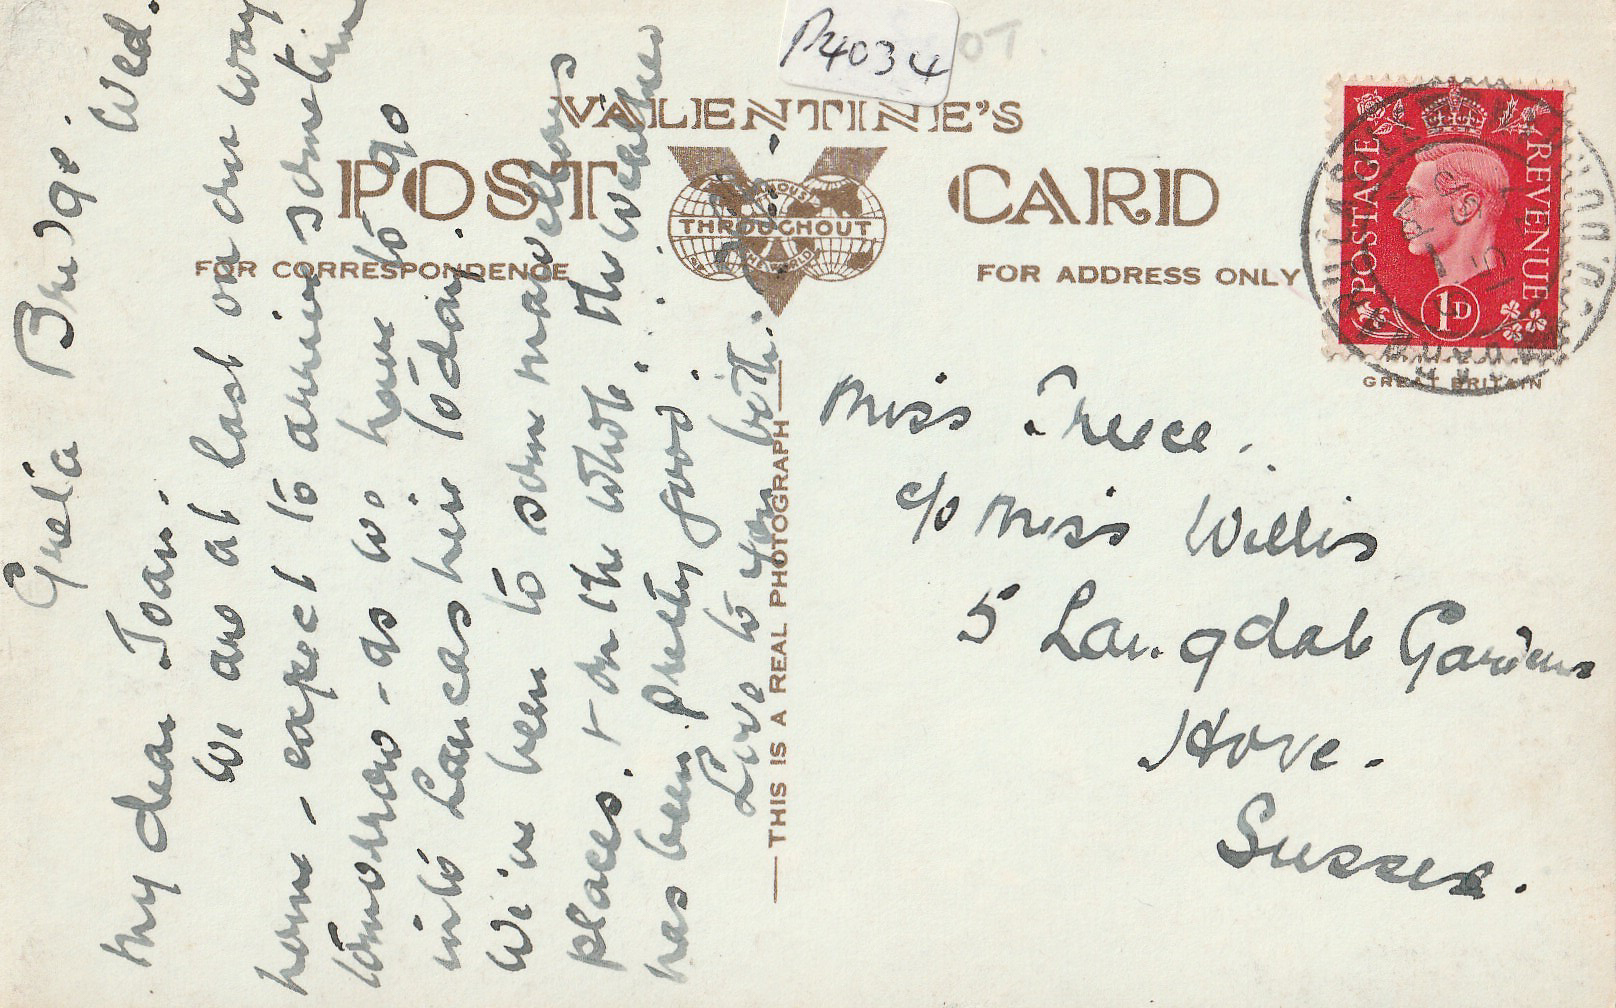 P4034
VALENTINE'S
POST CARD
FAMOUS
THROUGHOUT
THE WORLD
FOR CORRESPONDENCE
FOR ADDRESS ONLY
POSTAGE REVENUE
1D
GREAT BRITAIN
THIS IS A REAL PHOTOGRAPH
Greta Bridge. Wed.
My dear Joan.
We are at last on our way
home - expect to arrive sometime
tomorrow - as we have to go
into Lancas here today.
We've been to some marvellous
places. + on the whole the weather
has been pretty good.
Love to you both.
Miss Treece.
c/o Miss Willis
5 Langdale Gardens
Hove.
Sussex.